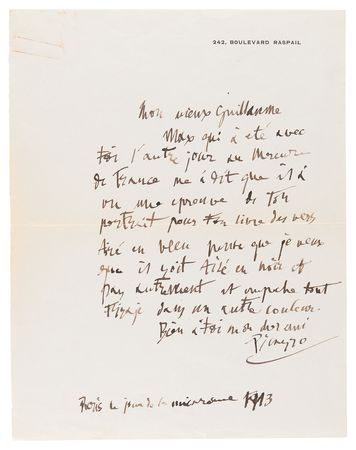 242, BOULEVARD RASPAIL
Mon vieux Guillaume
Max qui à été avec
toi l'autre jour au Mercure
de France me à dit que il à
vu une epreuve de ton
portrait pour ton livre des vers
tiré en bleu pense que je veux
que il soit tiré en noir et
pas autrement et empeche tout
tirage dans un autre couleur.
Bien à toi mon cher ami
Picasso
Paris le jour de la micareme 1913